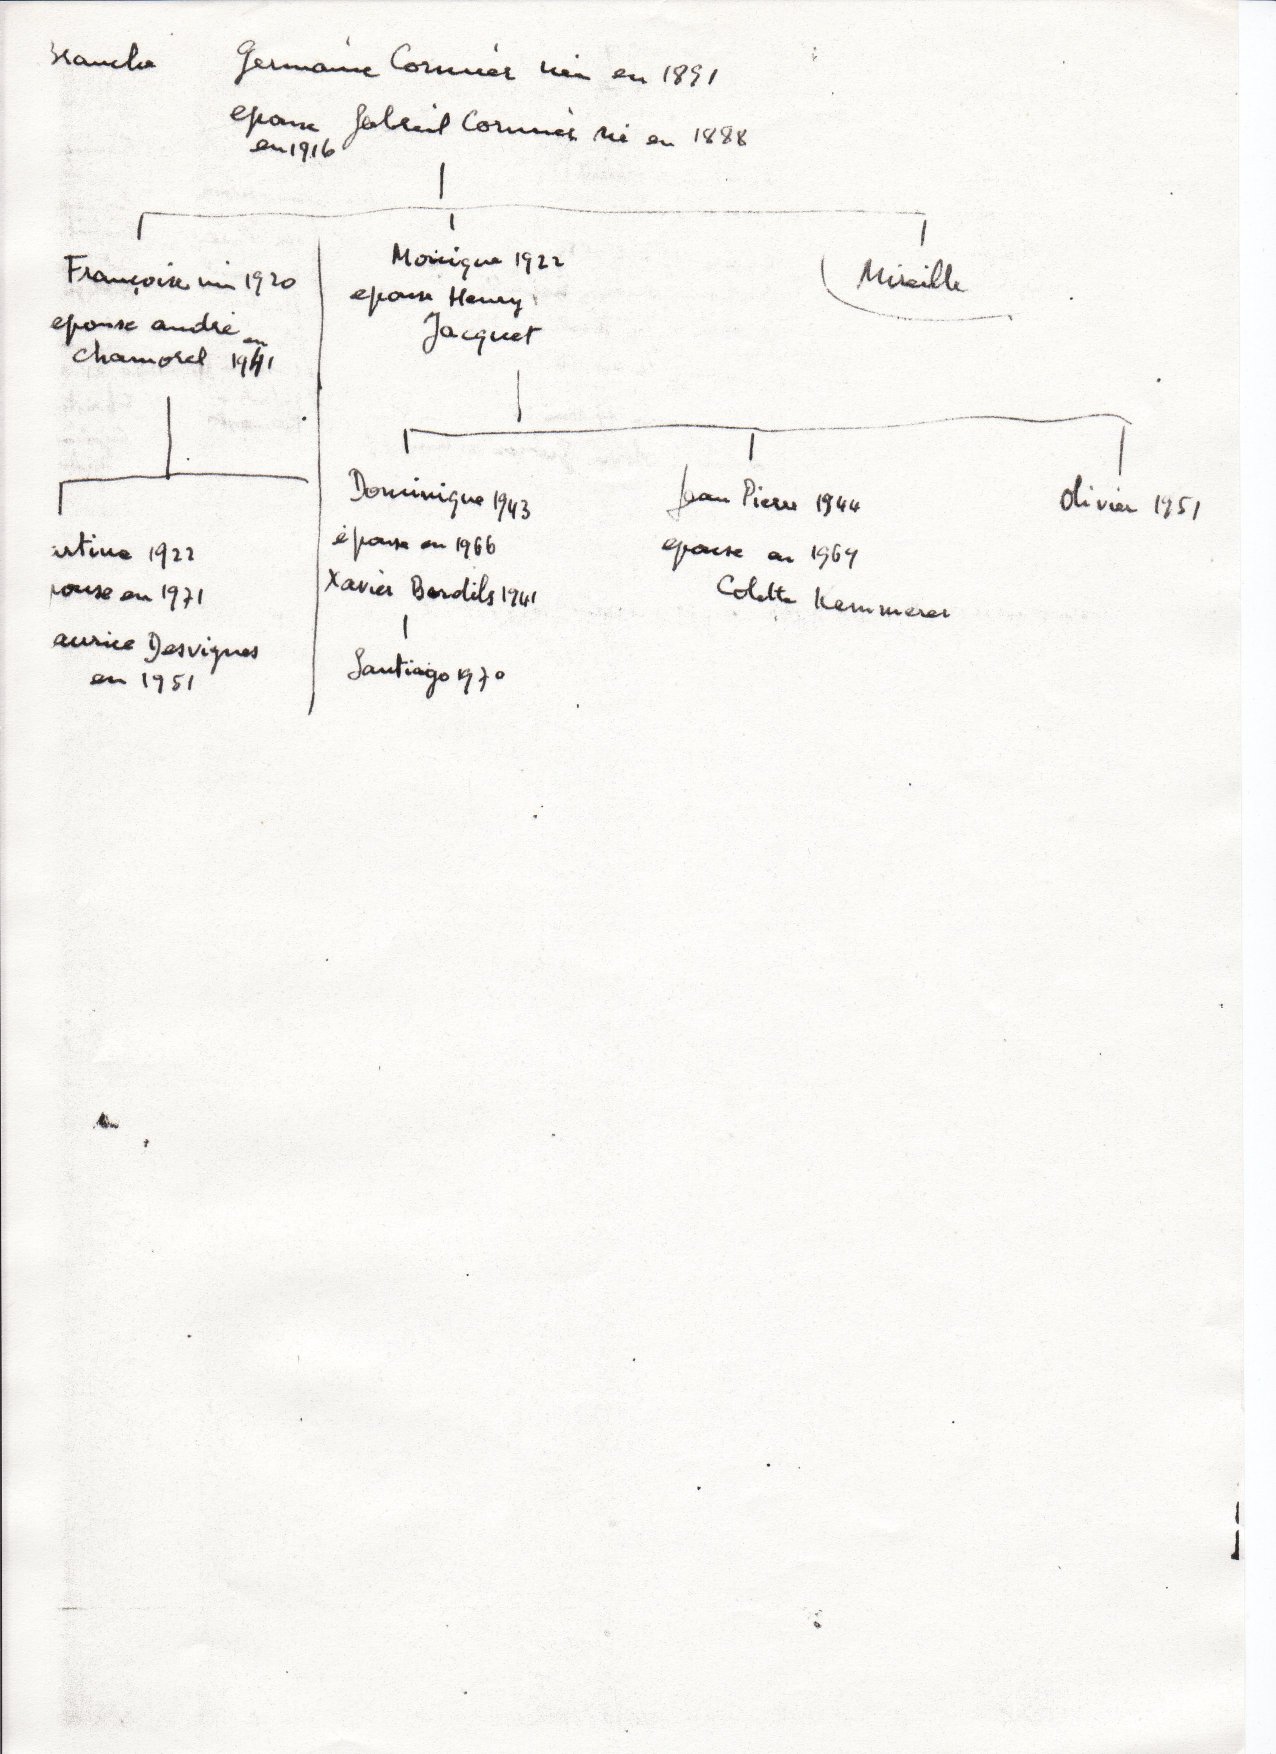 Branche Germaine Cormier née en 1891
epouse Gabriel Cormier né en 1888
en 1916
Françoise née 1920
epouse andré en
chamorel 1941
Monique 1922
epouse Henry
Jacquet
Mireille
artine 1922
pouse en 1971
aurice Desvignes
en 1951
Dominique 1943
épouse en 1966
Xavier Bardils 1941
Santiago 1970
Jean Pierre 1944
epouse en 1969
Colette Kemmerer
Olivier 1951